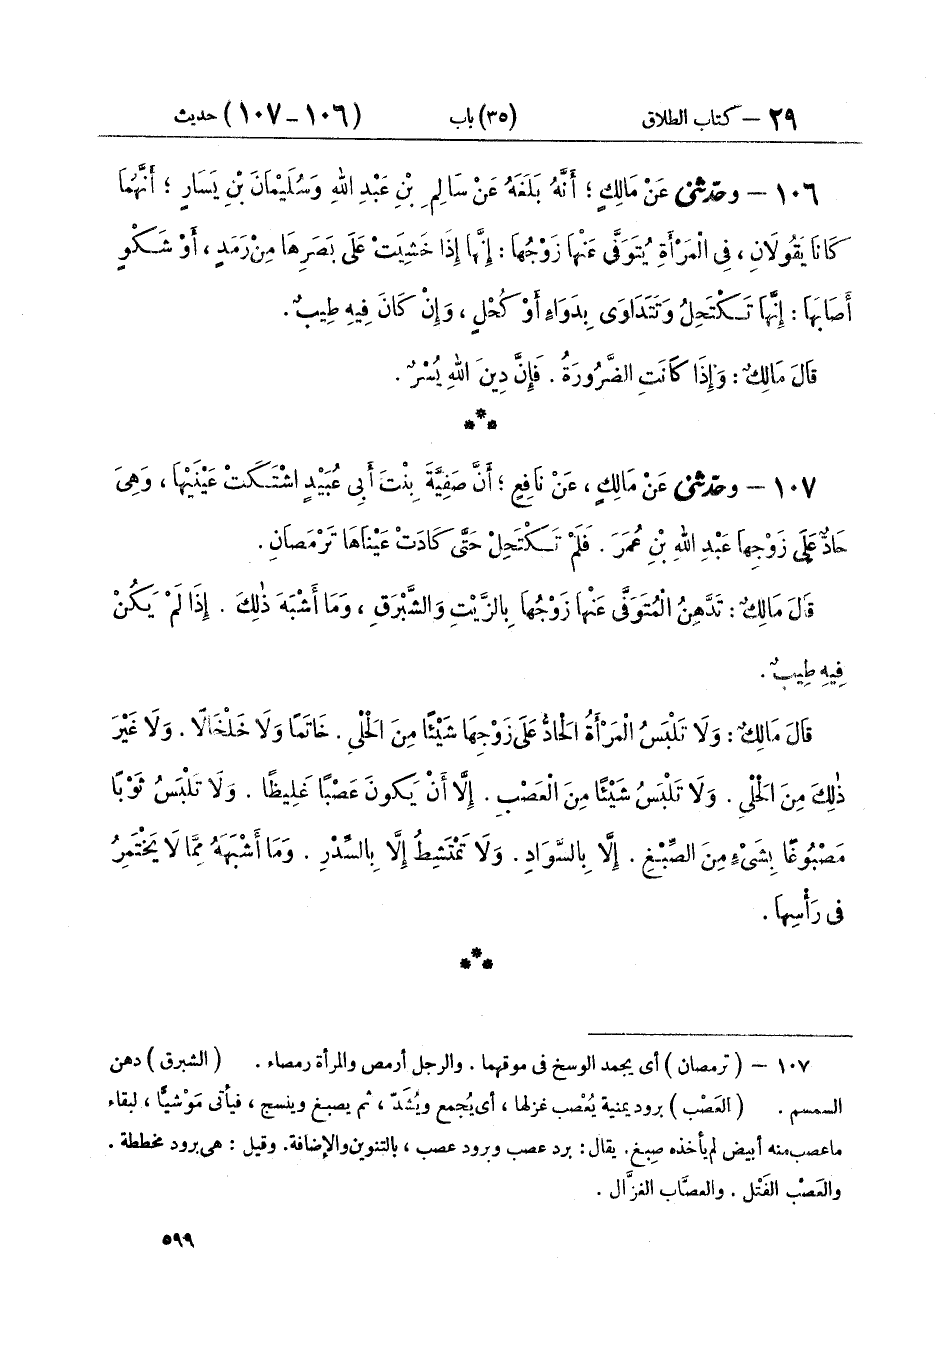 ٢٩ – كتاب الطلاق (٣٥) باب (١٠٦ – ١٠٧) حديث
١٠٦ – وحدّثني عَنْ مَالِكٍ ؛ أَنَّهُ بَلَغَهُ عَنْ سَالِمِ بْنِ عَبْدِ اللهِ وَسُلَيْمَانَ بْنِ يَسَارٍ ؛ أَنَّهُمَا
كَانَا يَقُولَانِ ، فِى الْمَرْأَةِ يُتَوَفَّى عَنْهَا زَوْجُهَا : إِنَّهَا إِذَا خَشِيَتْ عَلَى بَصَرِهَا مِنْ رَمَدٍ ، أَوْ شَكْوٍ
أَصَابَهَا : إِنَّهَا تَكْتَحِلُ وَتَتَدَاوَى بِدَوَاءٍ أَوْ كُحْلٍ ، وَإِنْ كَانَ فِيهِ طِيبٌ .
قَالَ مَالِكٌ : وَإِذَا كَانَتِ الضَّرُورَةُ . فَإِنَّ دِينَ اللهِ يُسْرٌ .
***
١٠٧ – وحدّثني عَنْ مَالِكٍ ، عَنْ نَافِعٍ ؛ أَنَّ صَفِيَّةَ بِنْتَ أَبِى عُبَيْدٍ اشْتَكَتْ عَيْنَيْهَا ، وَهِىَ
حَادٌّ عَلَى زَوْجِهَا عَبْدِ اللهِ بْنِ عُمَرَ . فَلَمْ تَكْتَحِلْ حَتَّى كَادَتْ عَيْنَاهَا تَرْمَصَانِ .
قَالَ مَالِكٌ : تَدَّهِنُ الْمُتَوَفَّى عَنْهَا زَوْجُهَا بِالزَّيْتِ وَالشَّبْرَقِ ، وَمَا أَشْبَهَ ذٰلِكَ . إِذَا لَمْ يَكُنْ
فِيهِ طِيبٌ .
قَالَ مَالِكٌ : وَلَا تَلْبَسُ الْمَرْأَةُ الْحَادُّ عَلَى زَوْجِهَا شَيْئًا مِنَ الْحَلْىِ . خَاتَمًا وَلَا خَلْخَالًا . وَلَا غَيْرَ
ذٰلِكَ مِنَ الْحَلْىِ . وَلَا تَلْبَسُ شَيْئًا مِنَ الْعَصْبِ . إِلَّا أَنْ يَكُونَ عَصْبًا غَلِيظًا . وَلَا تَلْبَسُ ثَوْبًا
مَصْبُوغًا بِشَىْءٍ مِنَ الصِّبْغِ . إِلَّا بِالسَّوَادِ . وَلَا تَمْتَشِطُ إِلَّا بِالسِّدْرِ . وَمَا أَشْبَهَهُ مِمَّا لَا يَخْتَمِرُ
فِى رَأْسِهَا .
***
١٠٧ – ( ترمصان ) أى يجمد الوسخ فى موقهما . والرجل أرمص والمرأة رمصاء . ( الشبرق ) دهن
السمسم . ( العَصْب ) برود يمنية يُعْصب غزلها ، أى يُجمع ويُشَدّ ، ثم يصبغ وينسج ، فيأتى مَوْشيًّا ، لبقاء
ماعصب منه أبيض لم يأخذه صِبغ . يقال : برد عصب وبرود عصب ، بالتنوين والإضافة . وقيل : هى برود مخططة .
والعَصْب الفَتْل . والعصَّاب الغزَّال .
٥٩٩